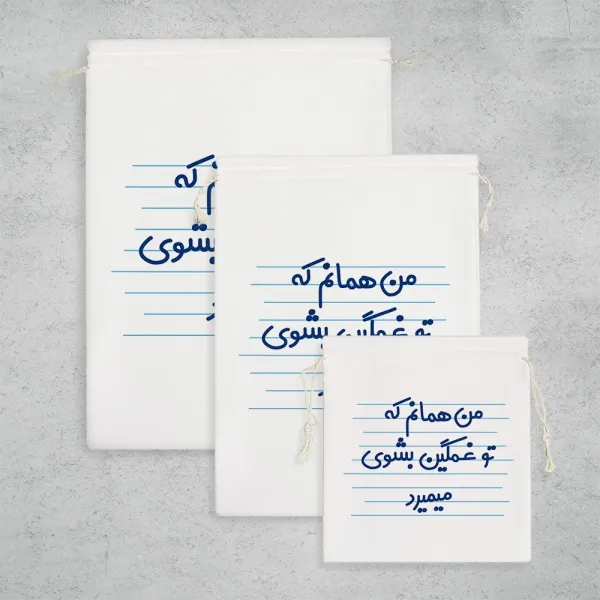 که
بشوی
من همانم که
تو غمگین بشوی
من همانم که
تو غمگین بشوی
میمیرد